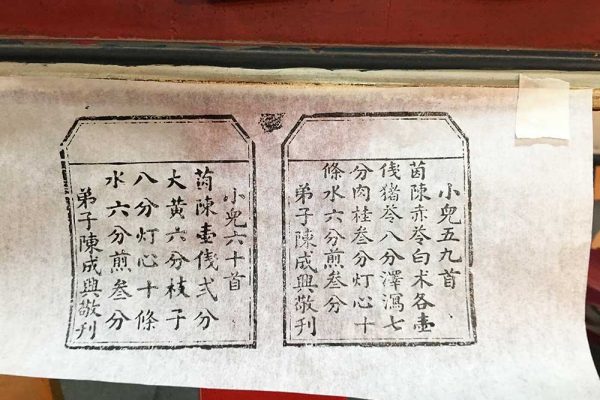 小兒五九首
茵陳赤苓白术各壹
俴猪苓八分澤瀉七
分肉桂叁分灯心十
條水六分煎叁分
弟子陳成興敬刊
小兒六十首
茵陳壹俴弍分
大黄六分枝子
八分灯心十條
水六分煎叁分
弟子陳成興敬刊